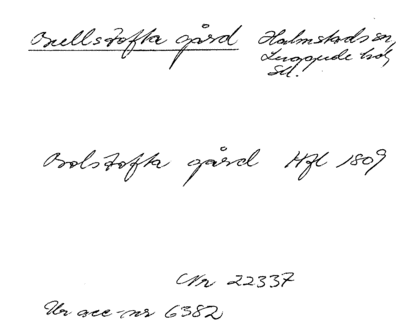 Bullstofta gård Halmstads sn,
Luggude hd,
Sk.
Bolstofta gård Hfl 1809
Nr 22337
Ur acc-nr 6382